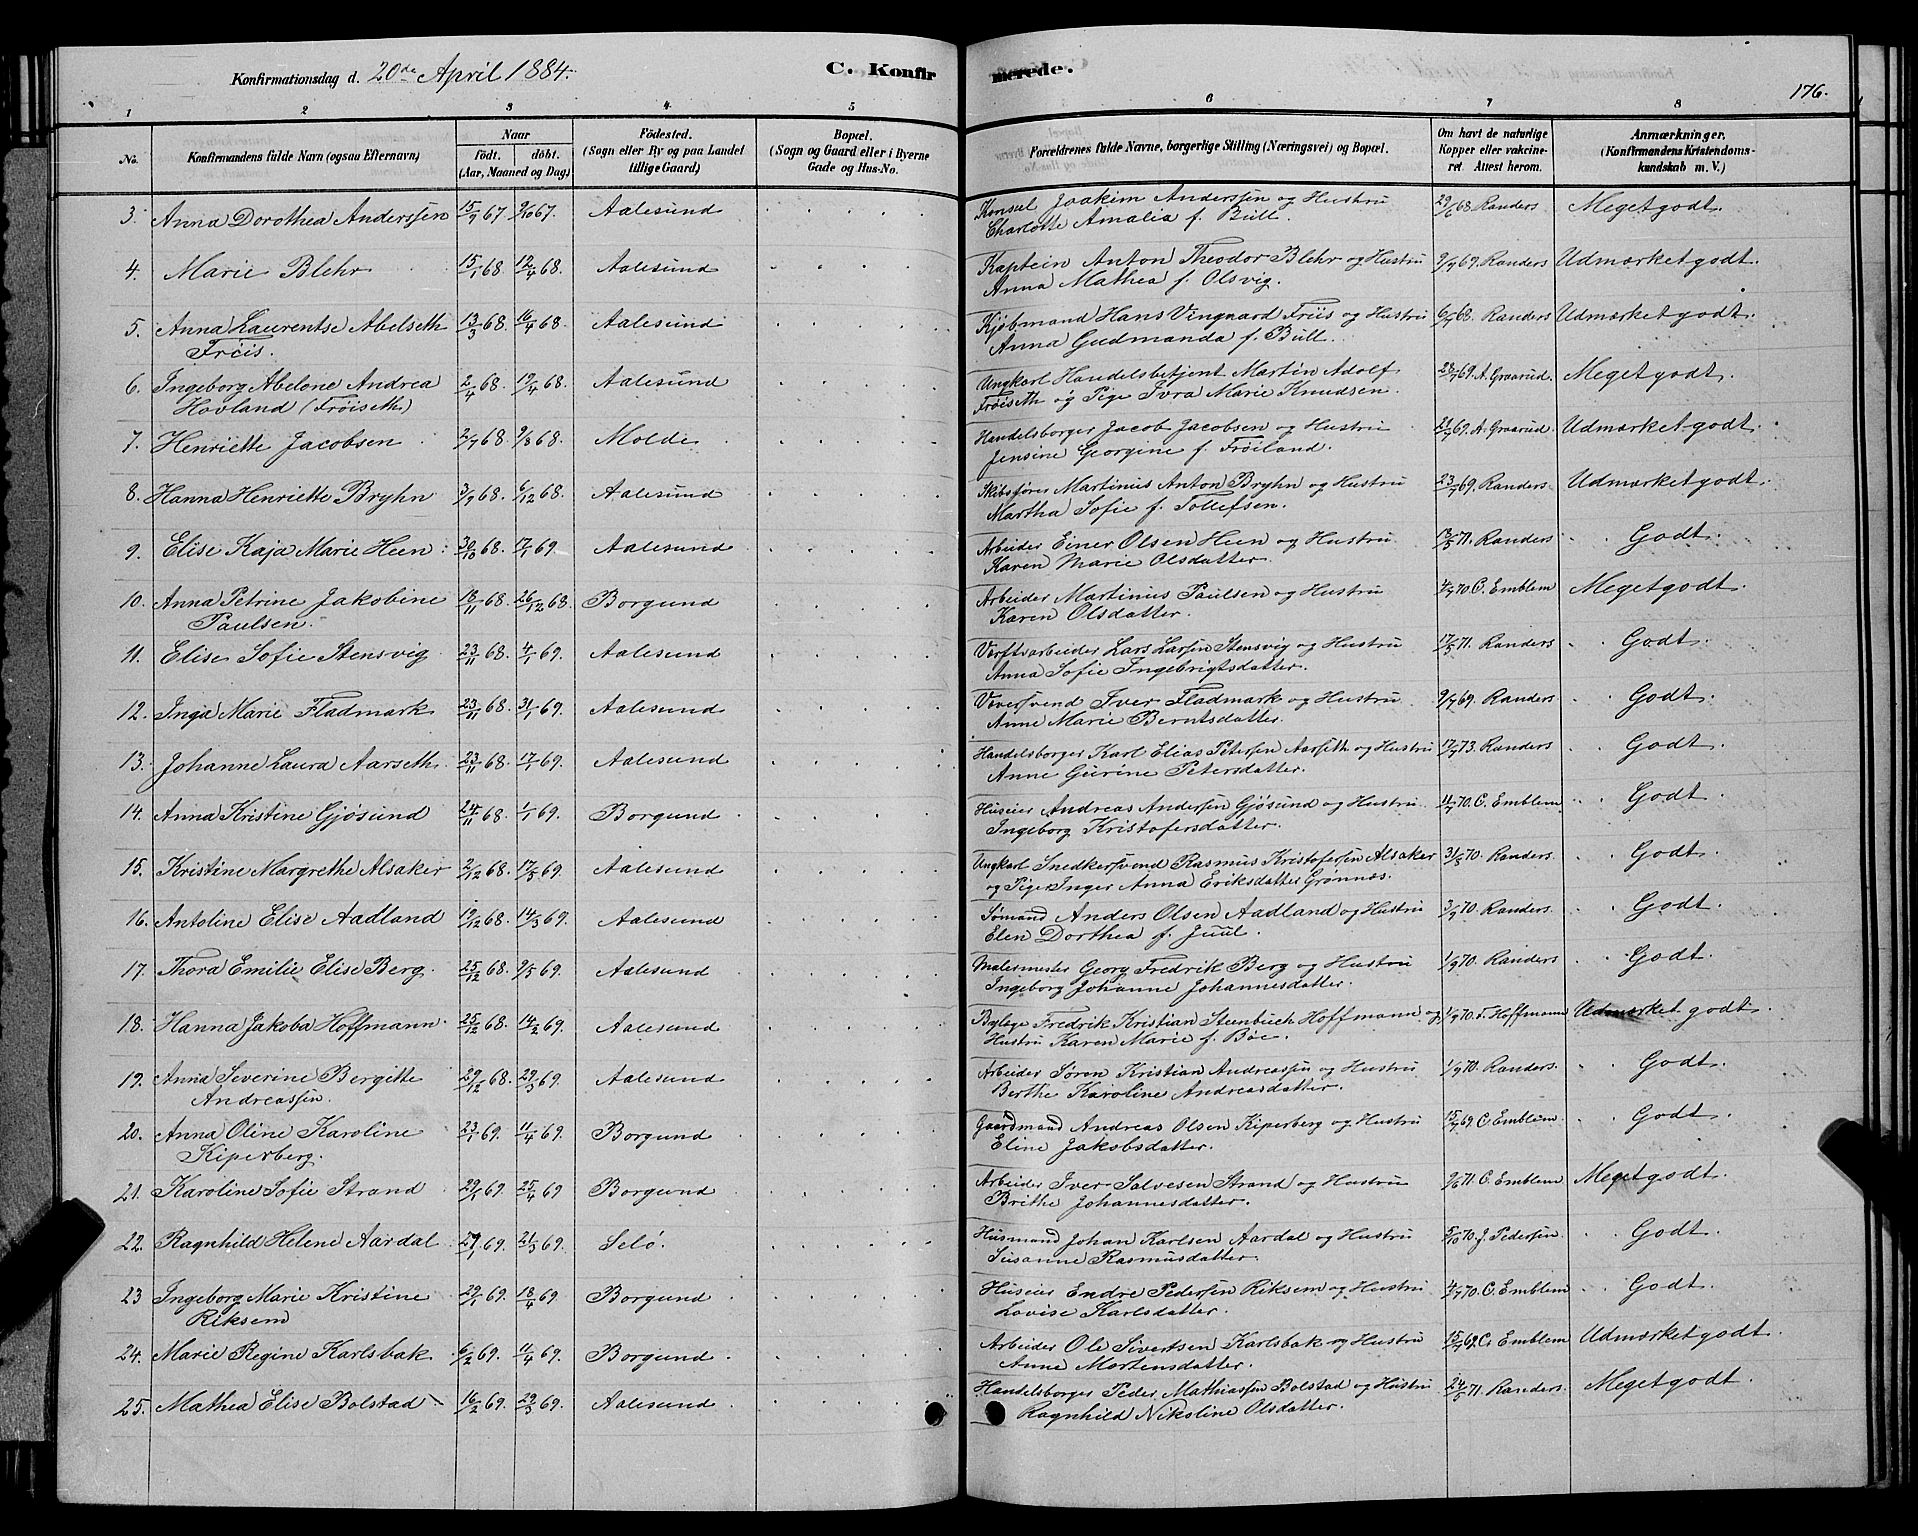 Konfirmationsdag d. 20de April 1884.
C. Konfirmerede.
176.
1 2 3 4 5 6 7 8
No. Konfirmandens fulde Navn (ogsaa Efternavn) Naar født. døbt. (Aar, Maaned og Dag) Fødested. (Sogn eller By og paa Landet tillige Gaard) Bopæl. (Sogn og Gaard eller i Byerne Gade og Hus-No. Forældrenes fulde Navne, borgerlige Stilling (Næringsvei) og Bopæl. Om havt de naturlige Kopper eller vaccineret Attest herom. Anmærkninger, (Konfirmandens Kristendomskundskab m. V.)
3. Anna Dorothea Anderssen 15/9 67 9/10 67. Aalesund Konsul Joakim Anderssen og Hustru 29/6 68 Randers Meget godt.
Charlotte Amalia f. Bull.
4. Marie Blehr 15/1 68. 12/4 68. Aalesund Kaptein Anton Theodor Blehr og Hustru 9/7 69. Randers Udmærket godt.
Anna Mathea f. Olsvig.
5. Anna Laurentse Abelseth 13/3 68. 16/4 68. Aalesund Kjøbmand Hans Vingaard Friis og Hustru 6/7 68. Randers Udmærket godt.
Friis. Anna Gudmanda f. Bull.
6. Ingeborg Abelone Andrea 2/4 68. 19/4 68. Aalesund Ungkarl Handelsbetjent Martin Adolf 28/7 69. A. Graarud. Meget godt.
Hovland (Frøiseth) Frøiseth og Pige Ivra Marie Knudsen.
7. Henriette Jacobsen 2/7 68. 9/8 68. Molde Handelsborger Jacob Jacobsen og Hustru 21/7 69. A. Graarud Udmærket godt.
Jensine Georgine f. Frøiland.
8. Hanna Henriette Bryhn 3/9 68. 6/12 68. Aalesund Skibsfører Martinus Anton Bryhn og Hustru 23/7 69. Randers Udmærket godt.
Martha Sofie f. Tollefsen.
9. Elise Kaja Marie Heen 30/10 68. 17/1 69. Aalesund Arbeider Einer Olsen Heen og Hustru 13/5 71. Randers Godt.
Karen Marie Olsdatter.
10. Anna Petrine Jakobine 18/11 68. 26/12 68. Borgund Arbeider Martinus Paulsen og Hustru 4/7 70. C. Emblem Meget godt.
Paulsen. Karen Olsdatter.
11. Elise Sofie Stensvig 23/11 68. 4/1 69. Aalesund Værftsarbeider Lars Larsen Stensvig og Hustru 17/5 71. Randers Godt.
Anna Sofie Ingebrigtsdatter.
12. Inga Marie Fladmark 23/11 68. 31/1 69. Aalesund Væversvend Iver Fladmark og Hustru 9/7 69. Randers Godt.
Anne Marie Berntsdatter.
13. Johanne Laura Aarseth 23/11 68. 17/1 69. Aalesund Handelsborger Karl Elias Petersen Aarseth og Hustru 17/7 73. Randers Godt.
Anne Gurine Petersdatter.
14. Anna Kristine Gjøsund 24/11 68. 1/1 69. Borgund Huseier Andreas Andersen Gjøsund og Hustru 11/7 70. C. Emblem Godt.
Ingeborg Kristofersdatter.
15. Kristine Margrethe Alsaker 2/12 68. 17/5 69. Aalesund Ungkarl Snedkersvend Rasmus Kristofersen Alsaker 31/5 70. Randers. Godt.
og Pige Inger Anna Eriksdatter Grønnæs.
16. Antoline Elise Aadland 19/12 68. 14/3 69. Aalesund Sømand Anders Olsen Aadland og Hustru 3/9 70. Randers. Godt.
Elen Dorthea f. Juul.
17. Thora Emilie Elise Berg. 25/12 68. 9/5 69. Aalesund Malermester Georg Fredrik Berg og Hustru 1/9 70. Randers Godt.
Ingeborg Johanne Johannesdatter.
18. Hanna Jakoba Hoffmann 25/12 68. 14/2 69. Aalesund Bylæge Fredrik Kristian Steenbuch Hoffmann og 1/9 70. F. Hoffmann Udmærket godt.
Hustru Karen Marie f. Bøe.
19. Anna Severine Bergitte 29/12 68. 29/3 69. Aalesund Arbeider Søren Kristian Andreassen og Hustru 1/9 70. Randers. Godt.
Andreassen. Berthe Karoline Andreasdatter.
20. Anna Oline Karoline 23/1 69. 11/4 69. Borgund Gaardmand Andreas Olsen Kiperberg og Hustru 15/7 69. C. Emblem. Godt.
Kiperberg. Eline Jakobsdatter.
21. Karoline Sofie Strand 29/1 69. 25/4 69 Borgund Arbeider Iver Salvesen Strand og Hustru 9/6 71. C. Emblem Meget godt.
Brithe Johannesdatter.
22. Ragnhild Helene Aardal 27/1 69. 21/3 69. Selø. Husmand Johan Karlsen Aardal og Hustru 5/10 70. J. Pedersen Godt.
Susanne Rasmusdatter.
23 Ingeborg Marie Kristine 29/1 69. 18/4 69. Borgund Huseier Endre Pedersen Riksem og Hustru 4/7 70. C. Emblem Godt.
Riksem Lovise Karlsdatter.
24. Marie Regine Karlsbak 6/2 69. 11/4 69. Borgund Arbeider Ole Sivertsen Karlsbak og Hustru 15/7 69. C. Emblem Udmærket godt.
Anne Mortensdatter.
25. Mathea Elise Bolstad 16/2 69. 29/3 69. Aalesund Handelsborger Peder Mathiassen Bolstad og Hustru 24/5 71. Randers. Meget godt.
Ragnhild Nikoline Olsdatter.